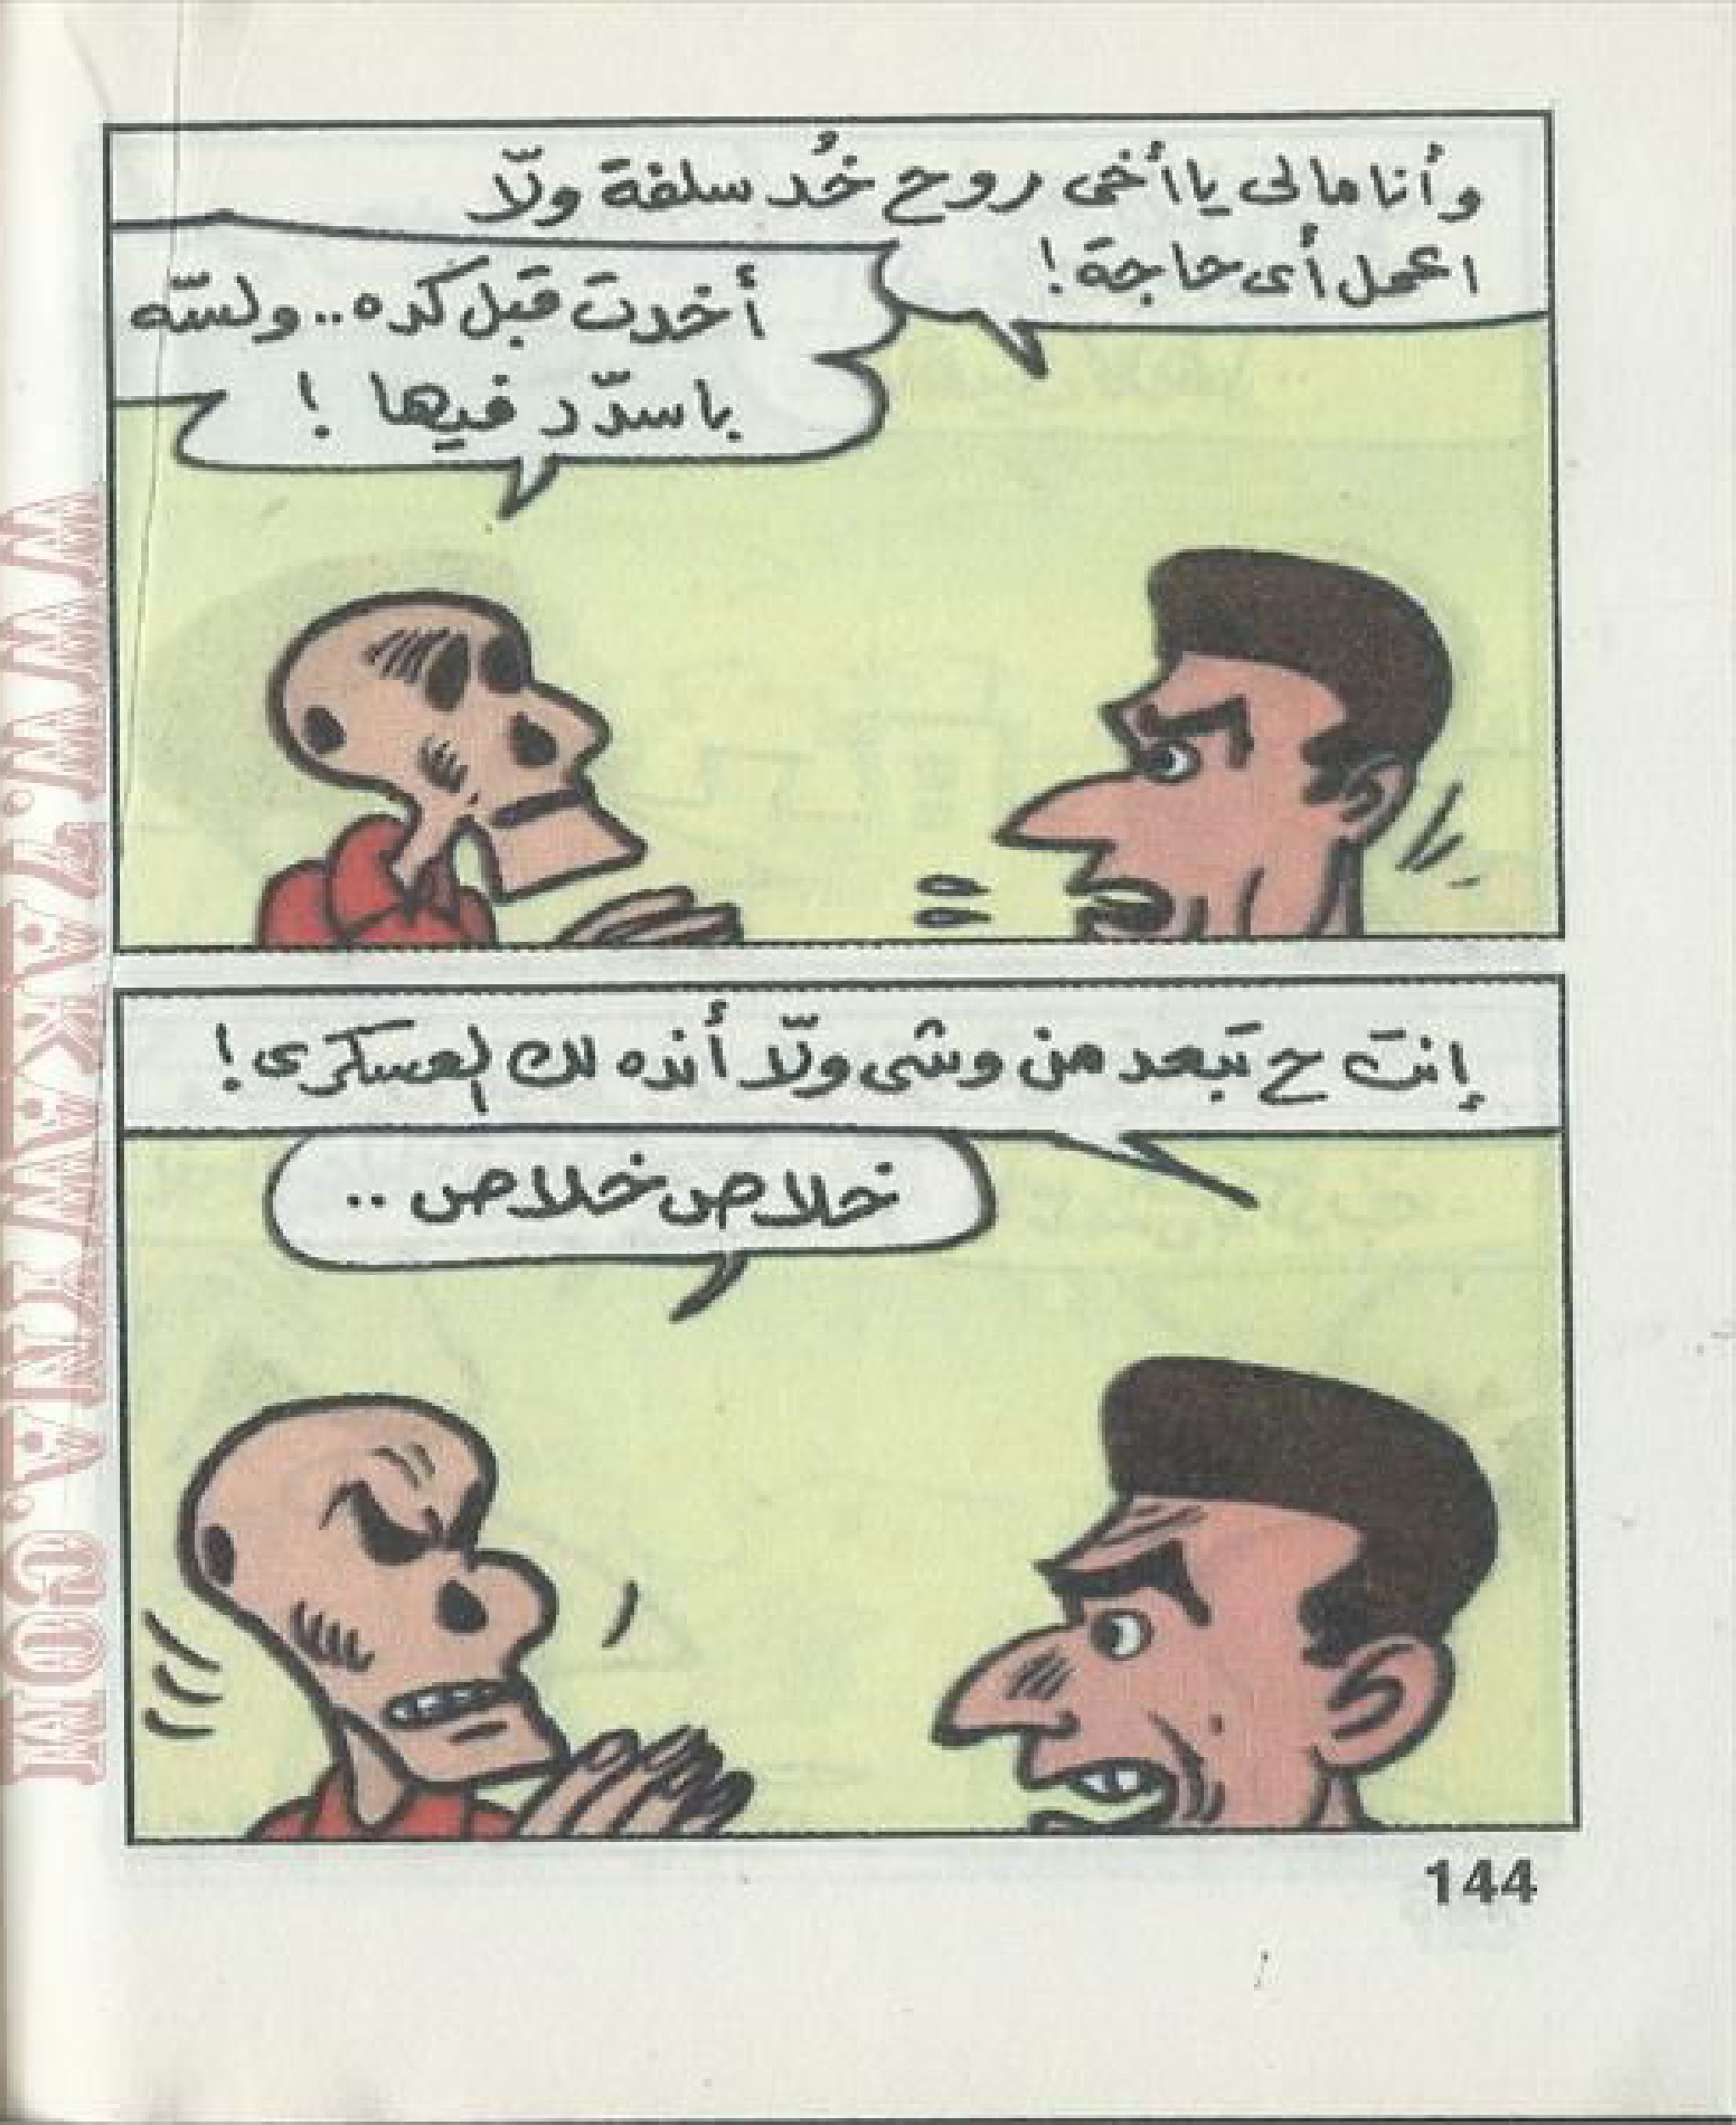 وأنا مالى يا أخى روح خُد سلفة ولّا
اعمل أى حاجة!
أخدت قبل كده.. ولسّه
باسدّد فيها !
إنت ح تبعد من وشى ولّا أنده لك العسكرى!
خلاص خلاص ..
144
WWW.7AKAWYNA.COM